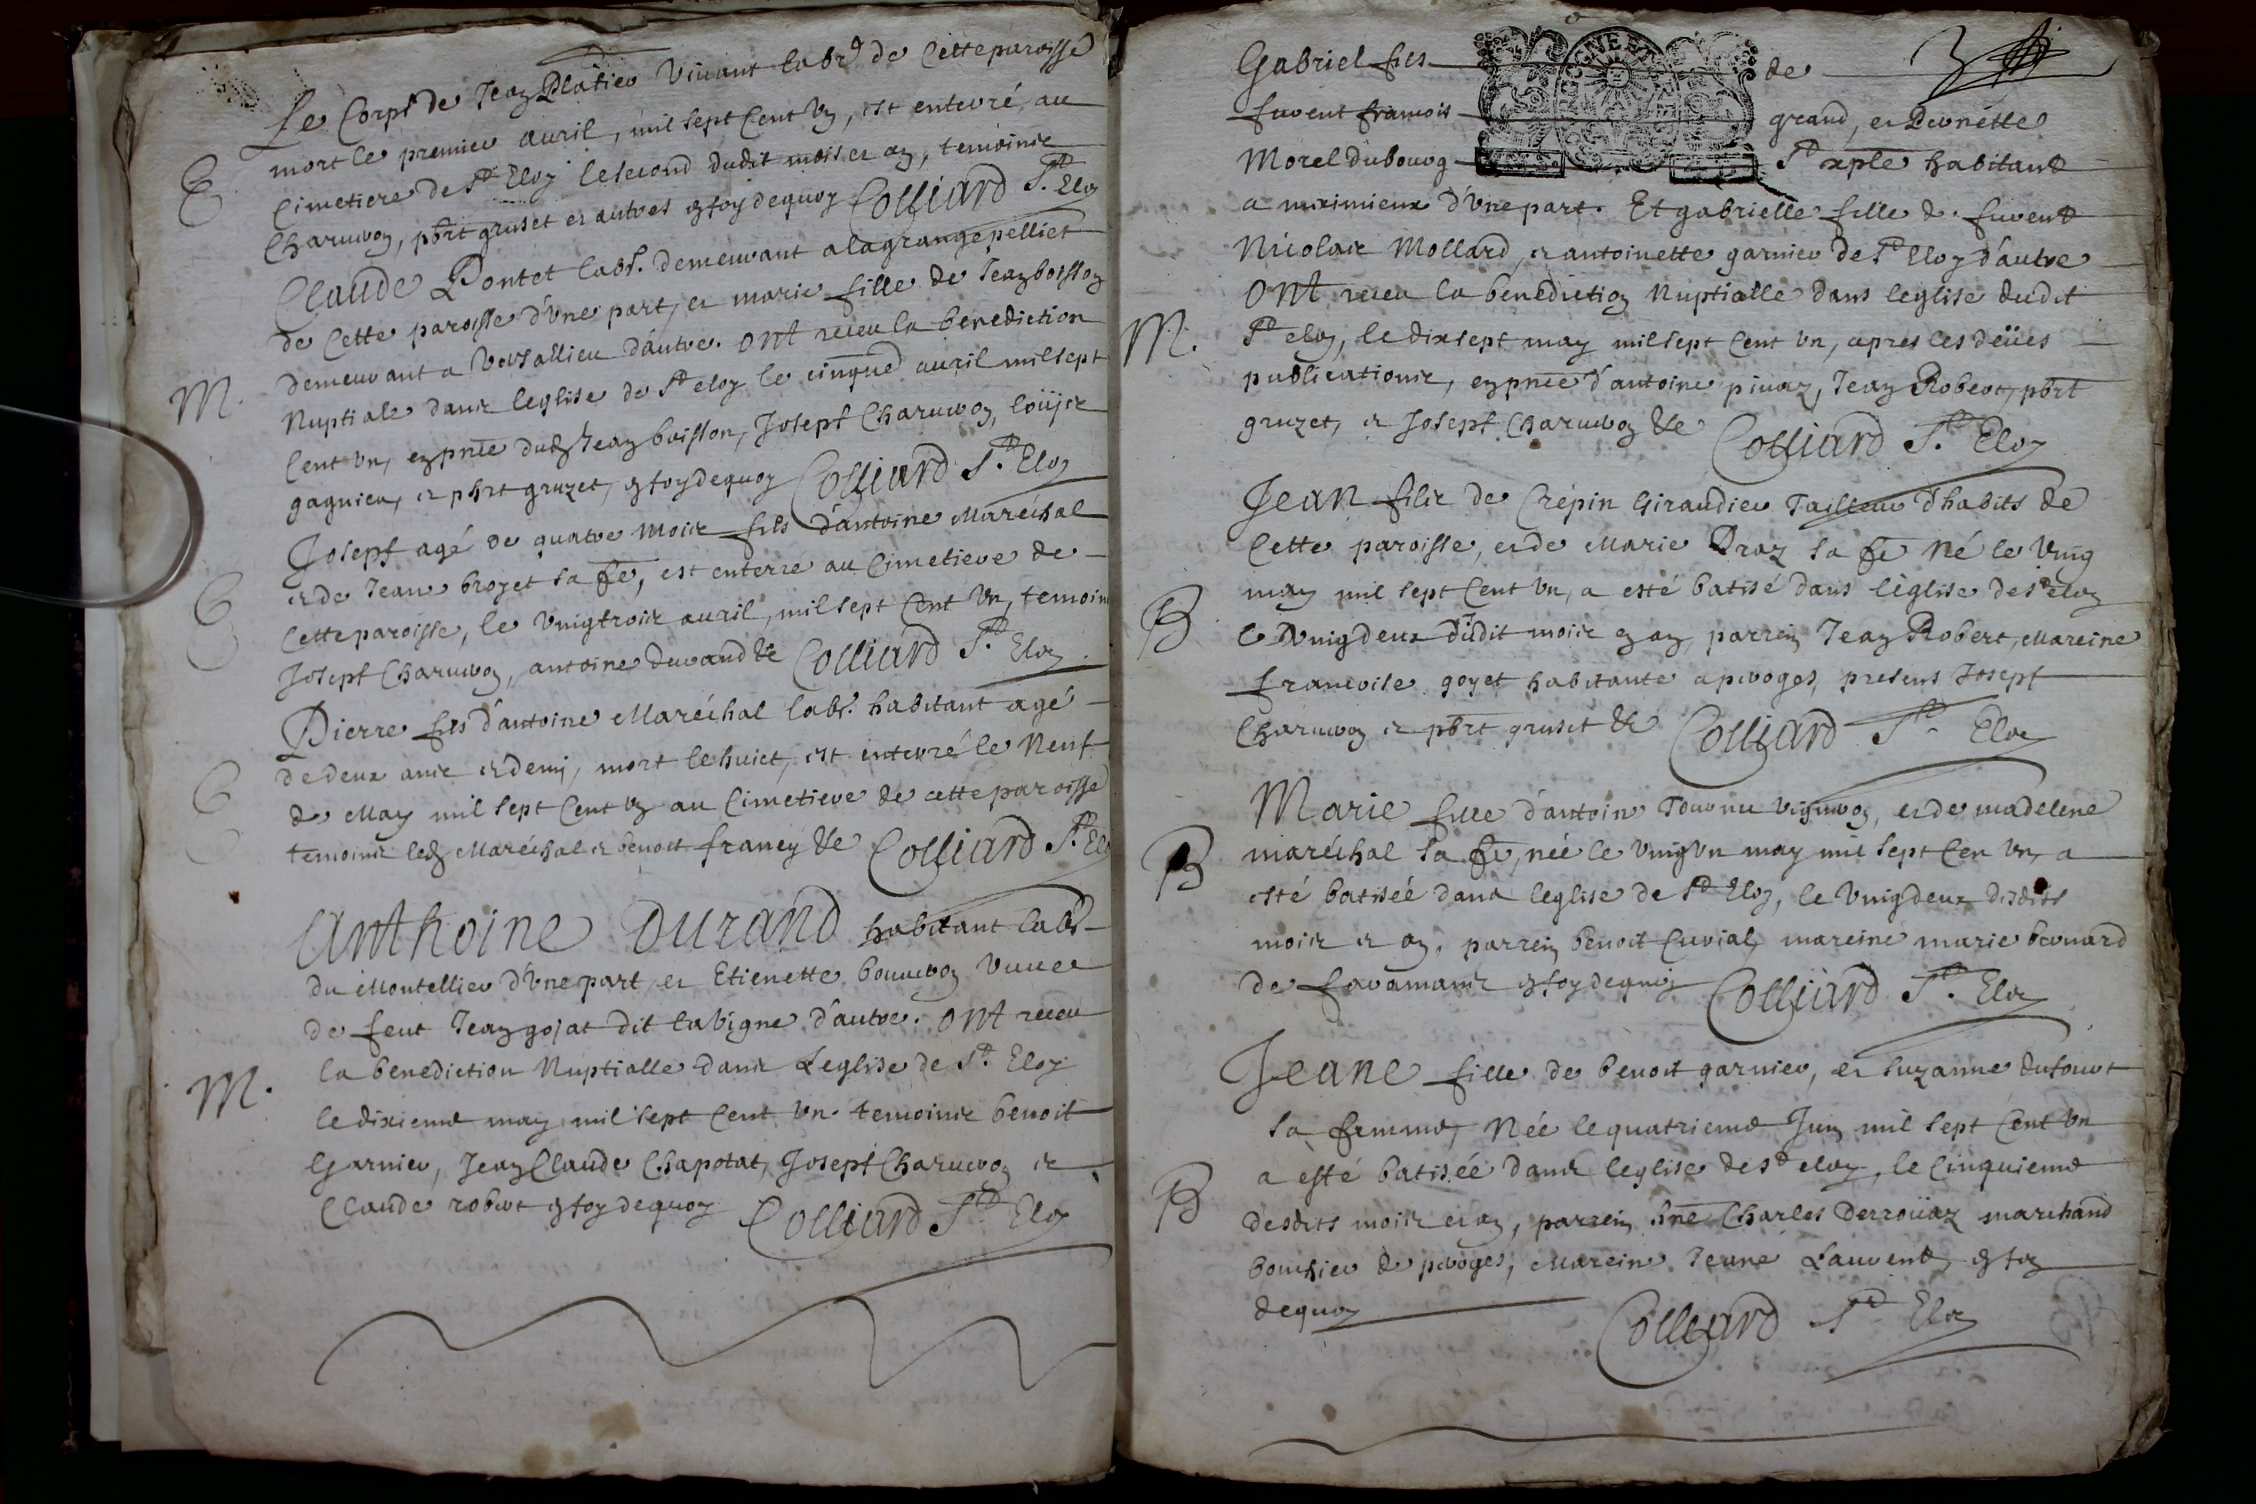 Le Corps de Jean Platier vivant labr de Cette paroisse
mort le premier auril, mil sept Cent Un, est enterré au
E
Cimetiere de St Eloy le second dudit mois et an, temoins
Charuuon, phrt gruset et autres en foy de quoy Colliard St. Eloy
Claude Pontet labr. demeurant a la grange pelliet
de Cette paroisse d'Une part, et marie fille de Jean boisson
demeurant a Versallieu d'autre. Ont receu la benediction
M.
Nuptiale dans leglise de St eloy le cinqme auril mil sept
Cent Un, en pnce dudt Jean boisson, Josepf Charuuon, loüis
gagnieu, et phrt gruzet, en foy de quoy Colliard St. Eloy
Josepf agé de quatre mois fils d'antoine Maréchal
et de Jeane broyet sa fe, est enterre au Cimetiere de
E
Cette paroisse, le vingtrois auril, mil sept Cent Un, temoins
Josepf Charuuon, antoine durand &c Colliard St. Eloy
Pierre fils d'antoine Maréchal labr. habitant agé
de deux ans et demi, mort le huict, est enterré le Neuf
E
de May mil sept Cent Un au Cimetiere de cette paroisse
temoins ledt Maréchal et benoit francy &c Colliard St. Eloy
Anthoine Durand habitant labr
du Montellier d'Une part, et Etienette bouuron vuuee
de feut Jean gojat dit la Vigne d'autre. Ont receu
la benediction Nuptialle dans Leglise de St. Eloy
M.
le dixieme may mil sept Cent Un. temoins benoit
Garnier, Jean Claude Chapotat, Josepf Charuuon et
Claude robert en foy de quoy Colliard St Eloy
Gabriel fils de
fuvent francois grand, et Pernette
Morel du bourg St xple habitant
a miximieux d'Une part. Et gabrielle fille de fuvent
Nicolas Mollard, et antoinette garnier de St Eloy d'autre
Ont receu la benediction Nuptialle dans leglise dudit
M.
St eloy, le dixsept may mil sept Cent Un, apres les deües
publications, en pnce d'antoine piuaz, Jean Robert, phrt
gruzet, et Josepf Charuuon &c Colliard St. Eloy
Jean fils de Crépin Giraudier Tailleur d'habits de
Cette paroisse, et de Marie Praz sa fe Né le Vingt
may mil sept Cent Un, a esté batisé dans léglise de St eloy
B
le Vingdeux dudit mois et an, parrein Jean Robert, Mareine
francoise goyet habitante a peroges, presens Josepf
Charuuon et phrt gruset &c Colliard St. Eloy
Marie fille d'antoin Tournu vigneron, et de madelene
B
maréchal sa fe, née le Vingun may mil sept Cen Un, a
esté batiséé dans leglise de St Eloy, le Vingdeux desdits
mois et an, parrein benoit Cuvial, mareine marie bernard
de faramans en foy de quoy Colliard St. Eloy
Jeane fille de benoit garnier, et Suzanne dufourt
sa femme, Née le quatrieme Juin mil sept Cent Un
a esté batisée dans leglise de St eloy, le Cinquieme
B
desdits mois et an, parrein sr Charles Derroüaz marchand
bouchier de peroges, Mareine Jeane Laurent, en foy
de quoy Colliard St Eloy